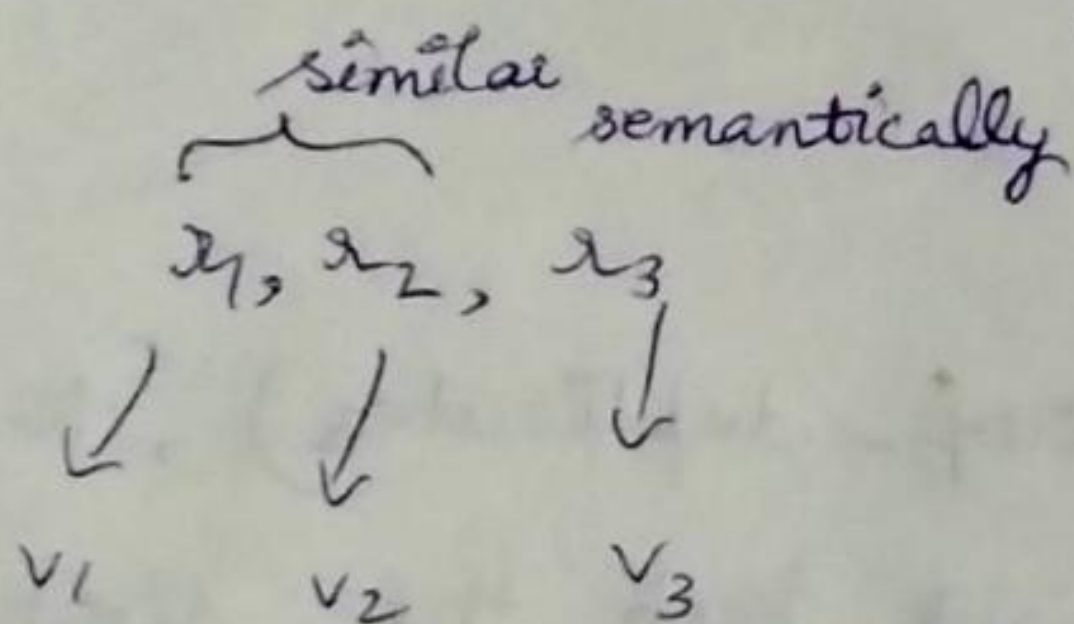 similar
semantically
r1, r2, r3
v1 v2 v3